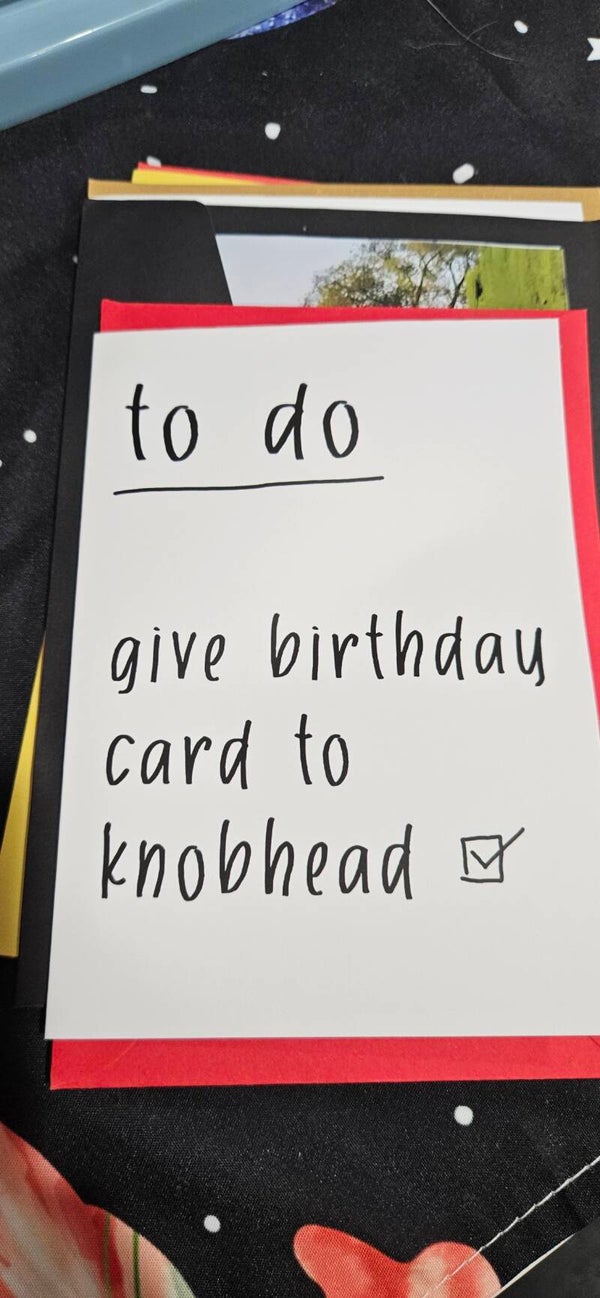 to do
give birthday
card to
knobhead ☑